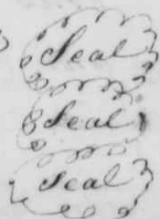 Seal
Seal
Seal